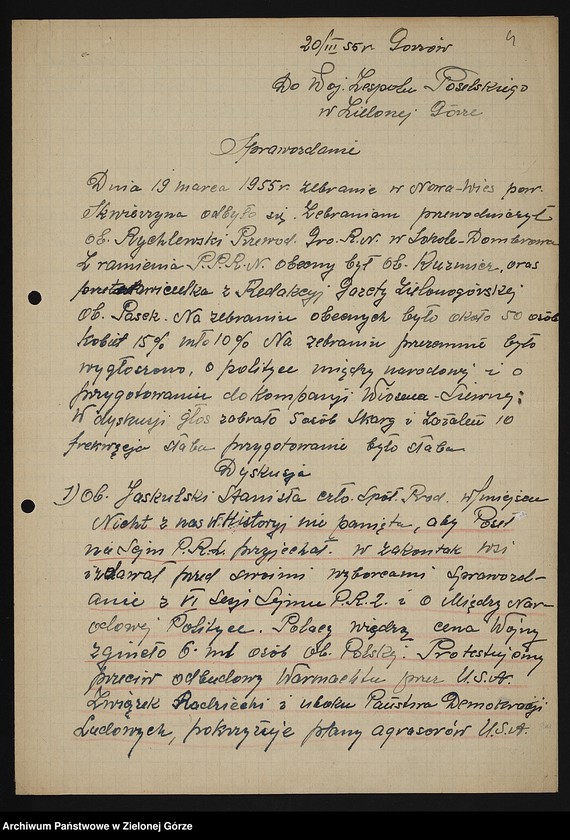 4
20/III 55 r. Gorzów
Do Woj. Zespołu Poselskiego
w Zielonej Górze
Sprawozdanie
Dnia 19 marca 1955 r. zebranie w Nowa-Wieś pow.
Skwierzyna odbyło się. Zebraniam przewodniczył
ob. Rychlewski Przewod. Gro. R.N. w Sokole-Dombrowa
Z ramienia P.P.R.N. obecny był ob. Kuzmicz, oraz
przedstawicielka z Redakcji Gazety Zielonogórskiej
Ob. Pasek. Na zebraniu obecnych było około 50 osób
Kobiet 15% mło 10% Na zebraniu przezemnie było
wygłoszowo, o polityce między narodowej i o
przygotowaniu do kompanji Wiosena-Siewnej:
W dyskusji głos zabrało 5 osób Skarg i Zażaleń 10
frekwęcja słaba przygotowanie było słabe
Dyskusja
1) Ob. Jaskulski Stanisła czło. Spół. Prod. w
Nicht z nas w Historyj nie pamięta, aby Poseł
na Sejm P.R.L przyjechał. w zakontak wsi
i zdawał przed swoimi wyborcami Sprawozd-
anie z VI Sesji Sejmu P.R.L. i o Między Nar-
odowej Polityce. Polacy więdzą cena Wojny
zgineło 6 ml osób Ob. Polski. Protestujemy
przeciw odbudowy Warmachtu przez U.S.A.
Związek Radziecki i uboku Państwa Demokracji
Ludowych, pokrzyżuje plany agresorów U.S.A.
Archiwum Państwowe w Zielonej Górze